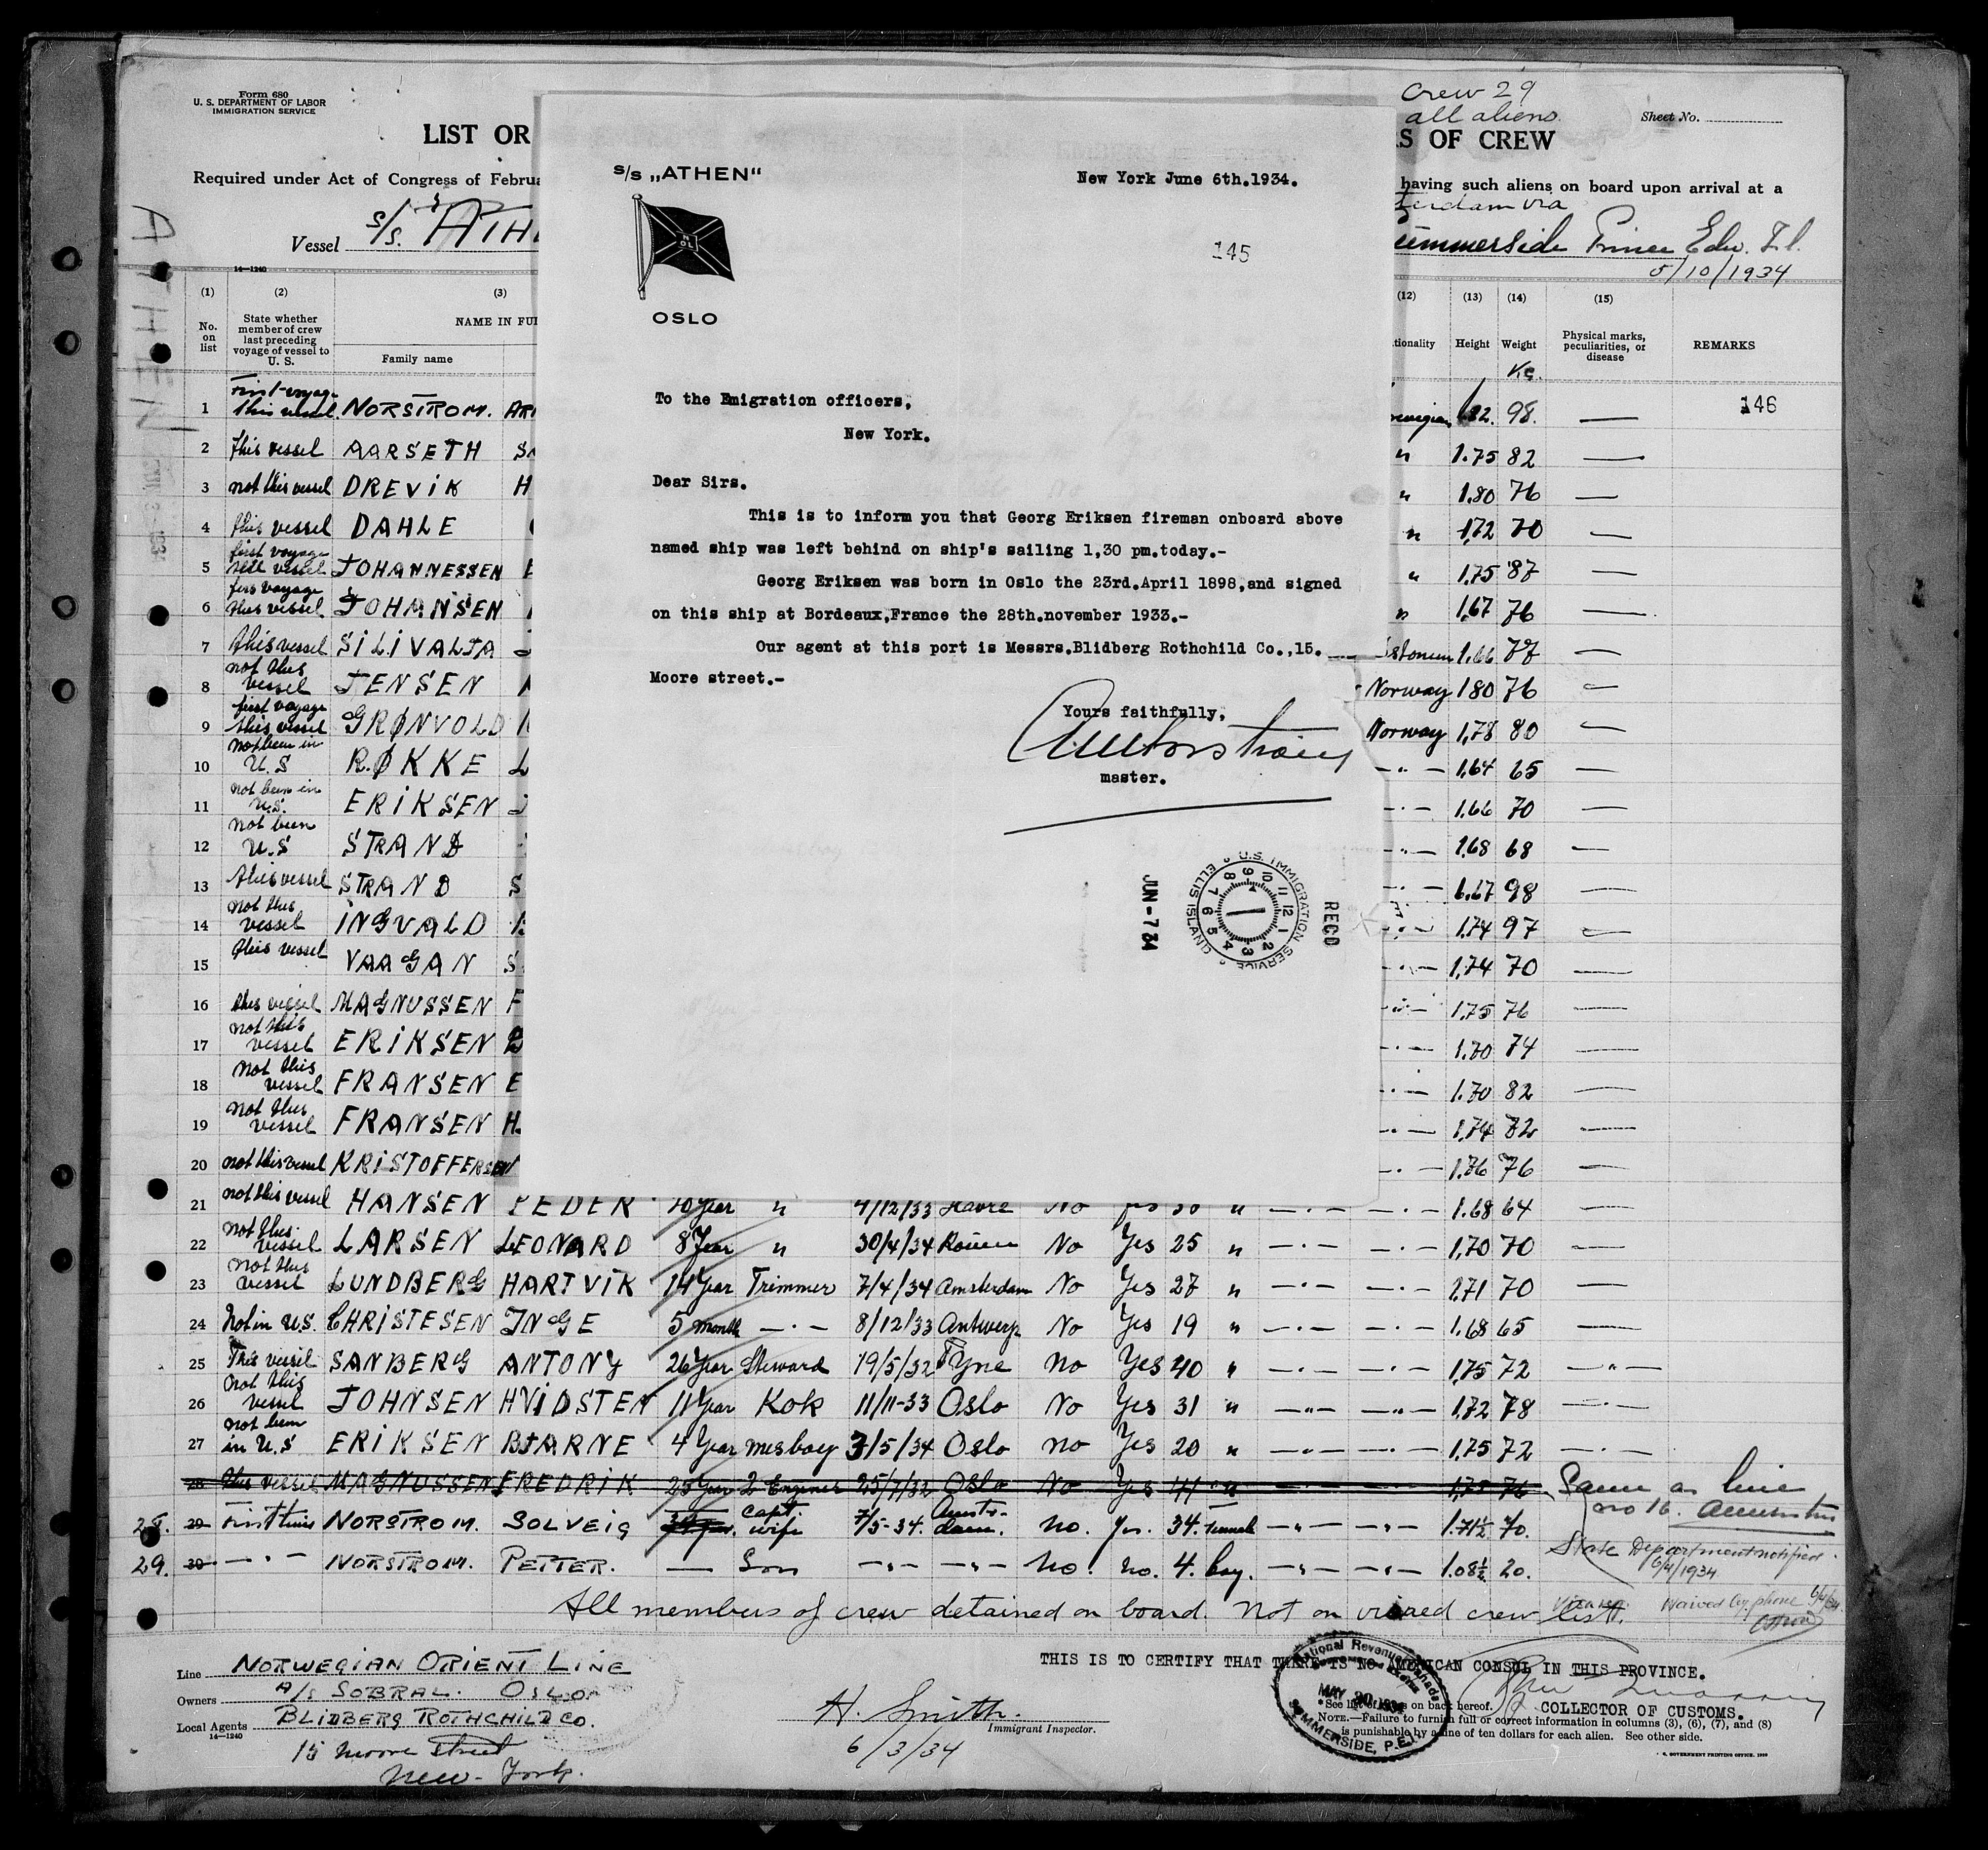 Form 680
U. S. DEPARTMENT OF LABOR
IMMIGRATION SERVICE
LIST OR
Required under Act of Congress of Februa
Vessel s/s. ATH
14—1240
ATHEN
Crew 29
all aliens.
Sheet No.
S OF CREW
having such aliens on board upon arrival at a
terdam via
ummerside Prince Edw. Isl.
5/10/1934
s/s „ATHEN"
N
OL
OSLO
New York June 6th.1934.
145
To the Emigration officers,
New York.
Dear Sirs.
This is to inform you that Georg Eriksen fireman onboard above
named ship was left behind on ship's sailing 1,30 pm.today.-
Georg Eriksen was born in Oslo the 23rd.April 1898,and signed
on this ship at Bordeaux,France the 28th.november 1933.-
Our agent at this port is Messrs.Blidberg Rothchild Co.,15.
Moore street.-
Yours faithfully,
master.
RECD
U.S. IMMIGRATION SERVICE
ELLIS ISLAND
1 2 3 4 5 6 7 8 9 10 11 12
JUN-7 34
(1) (2) (3) (12) (13) (14) (15)
No. on list
State whether member of crew last preceding voyage of vessel to U. S.
NAME IN FUL
Family name
tionality Height Weight
Physical marks, peculiarities, or disease
REMARKS
Kg.
146
1 First voyage this vessel NORSTROM. AR 98. —
2 this vessel AARSETH " 1.75 82 —
3 not this vessel DREVIK H " 1.80 76 —
4 this vessel DAHLE " 1,72 70 —
5 first voyage vessel JOHANNESSEN " 1,75 87 —
6 voyage this vessel JOHANSEN " 1,67 76 —
7 this vessel SILIVALJA 1.66 77 —
8 not this vessel JENSEN Norway 1 80 76 —
9 first voyage this vessel GRØNVOLD Norway 1,78 80 —
10 not been in U.S RØKKE L —"— 1,64 65 —
11 not been in U.S. ERIKSEN —"— 1.66 70 —
12 not been U.S STRAND —"— 1,68 68 —
13 this vessel STRAND S 98 —
14 not this vessel INGVALD 1.74 97 —
15 this vessel VAAGAN S 1,74 70 —
16 this vessel MAGNUSSEN F 1,75 76 —
17 not this vessel ERIKSEN 1.70 74 —
18 not this vessel FRANSEN E 1.70 82 —
19 not this vessel FRANSEN H 1,74 72 —
20 not this vessel KRISTOFFERSEN 1.76 76 —
21 not this vessel HANSEN PEDER 10 Year " 4/12/33 Havre No " —"— —"— 1.68 64 —
22 not this vessel LARSEN LEONARD 8 Year " 30/4/34 Rouen No Yes 25 " —"— —"— 1,70 70 —
23 not this vessel LUNDBERG HARTVIK 14 Year Trimmer 7/4/34 Amsterdam No Yes 27 " —"— —"— 1,71 70 —
24 Not in U.S. CHRISTESEN INGE 5 month —"— 8/12/33 Antwerp No Yes 19 " —"— —"— 1.68 65 —
25 This vessel SANBERG ANTONY 26 Year Steward 19/5/32 Tyne No Yes 40 " —"— —"— 1,75 72 —"—
26 not this vessel JOHNSEN HVIDSTEN 11 Year Kok 11/11-33 Oslo No Yes 31 " —"— —"— 1,72 78 —"—
27 not been in U.S ERIKSEN BJARNE 4 Year mesboy 3/5/34 Oslo no Yes 20 " —"— —"— 1,75 72 —"—
28 this vessel MAGNUSSEN FREDRIK 25 Year 2 Enginer 25/7/32 Oslo No Yes 41 " 1,75 76
Same as line
no 16.
28. 29 First time NORSTROM. SOLVEIG capt. wife 7/5-34. Amsterdam. no. yes. 34. female —"— —"— 1.71½ 70.
29. 30 —"— NORSTROM. PETTER. — Son —"— —"— No. no. 4. boy. —"— —"— 1.08½ 20.
State Department notified.
6/4/1934
All members of crew detained on board. Not on visaed crew list.
Waived by phone
Line NORWEGIAN ORIENT LINE
Owners A/S SOBRAL. OSLO
Local Agents BLIDBERG ROTHCHILD CO.
14—1240
15 Moore Street
New-York.
H. Smith.
Immigrant Inspector.
6/3/34
THIS IS TO CERTIFY THAT THERE IS NO AMERICAN CONSUL IN THIS PROVINCE.
COLLECTOR OF CUSTOMS.
National Revenue Canada
MAY 30 1934
SUMMERSIDE, P.E.I.
*See list of on back hereof.
NOTE.—Failure to furnish full or correct information in columns (3), (6), (7), and (8)
is punishable by a fine of ten dollars for each alien. See other side.
U. S. GOVERNMENT PRINTING OFFICE. 1930